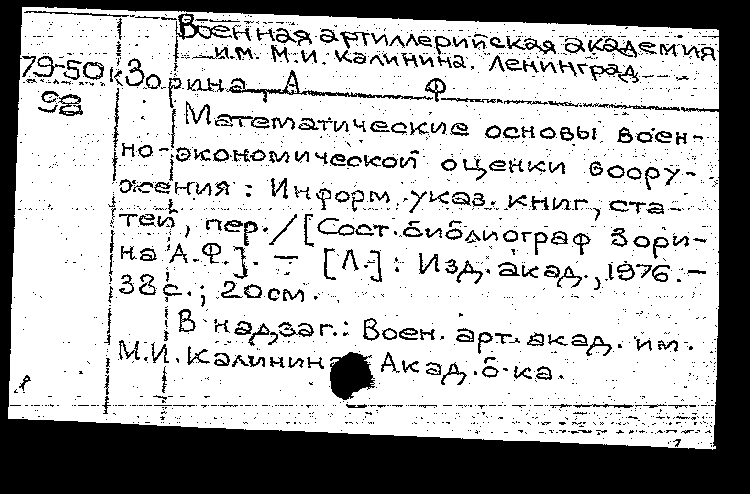 Военная артиллерийская академия
им. М.И. Калинина. Ленинград
79-50к Зорина, А Ф
98
Математические основы воен-
но-экономической оценки воору-
жения : Информ. указ. книг, ста-
тей, пер. / [Сост. библиограф Зори-
на А.Ф.]. — [Л.] : Изд. акад., 1976. —
38 с. ; 20 см.
В надзаг.: Воен. арт. акад. им.
М.И. Калинина. Акад. б-ка.